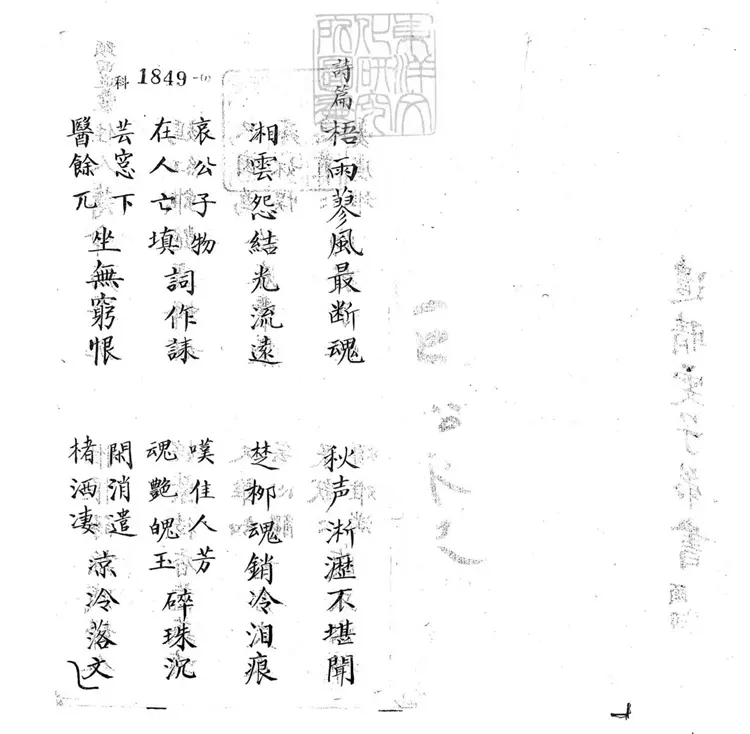 東洋文
化研究
所圖書
科 1849
詩篇 梧雨蓼風最断魂 秋声淅瀝不堪聞
湘雲怨結光流遠 楚柳魂銷冷泪痕
哀公子物在人亡填詞作誄 嘆佳人芳魂艷魄玉碎珠沉
芸窓下醫餘兀坐無窮恨 閑消遣楮洒凄涼冷落文